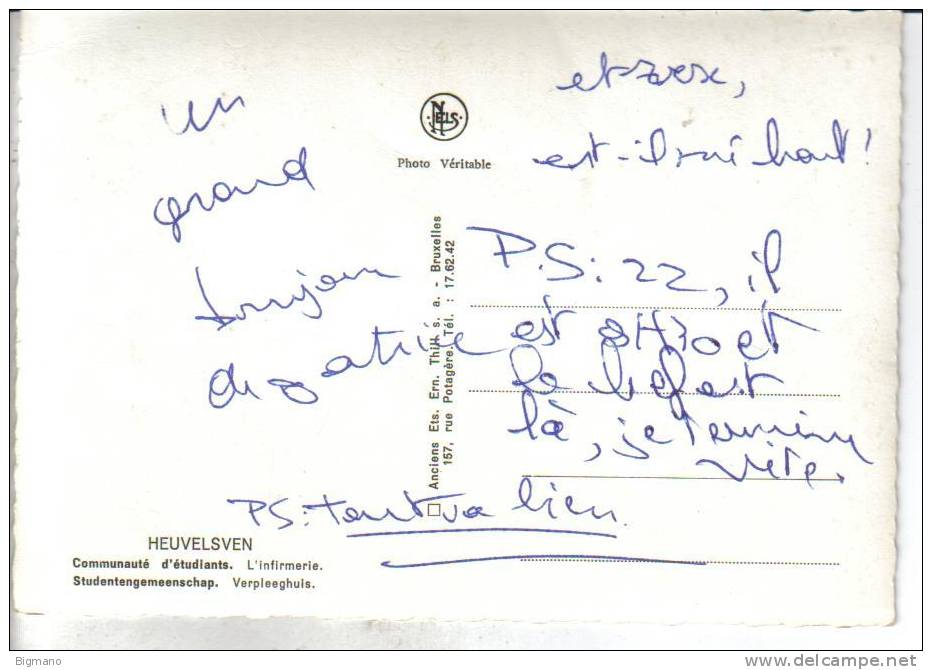 un
grand
bonjour
de
et
est-il si haut!
NELS
Photo Véritable
P.S: 22, il
est 8H70 et
le
là, je termine
vite.
PS: tout va bien
Anciens Ets. Ern. Thill s. a. - Bruxelles
157, rue Potagère. Tél. : 17.62.42
HEUVELSVEN
Communauté d'étudiants. L'infirmerie.
Studentengemeenschap. Verpleeghuis.
Bigmano
www.delcampe.net